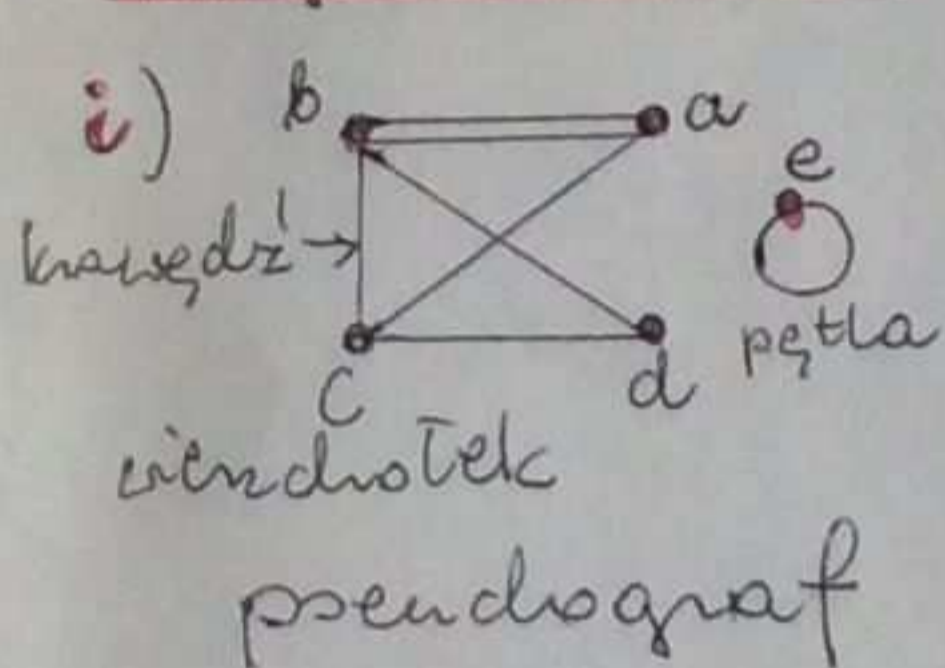 i) b a
e
krawędź
pętla
c d
wierzchołek
pseudograf